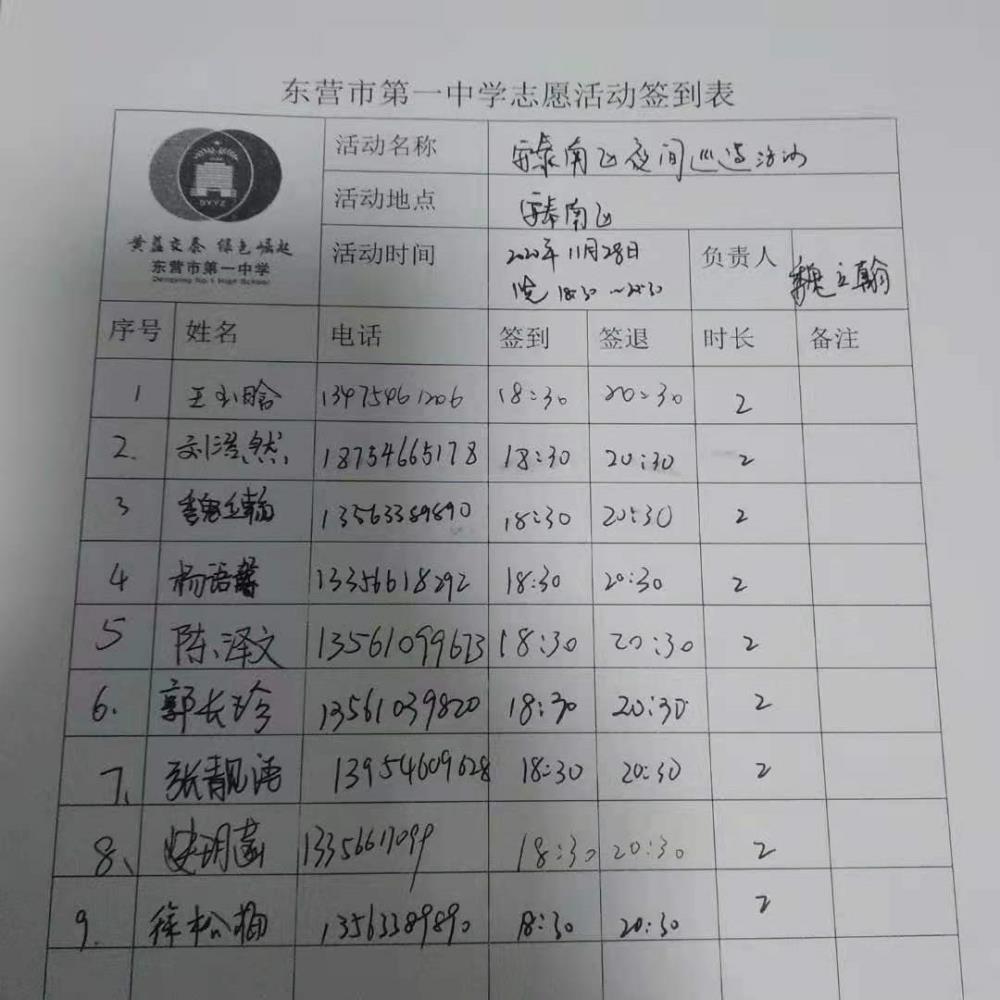 东营市第一中学志愿活动签到表
活动名称 安泰南区夜间巡逻活动
DYYZ
活动地点 安泰南区
黄蓝交泰 绿色崛起
东营市第一中学
Dongying No.1 High School
活动时间 2020年11月28日 负责人 魏立翰
晚18:30~20:30
序号 姓名 电话 签到 签退 时长 备注
1 王 晗 13475461206 18:30 20:30 2
2. 刘浩然 18754665178 18:30 20:30 2
3 魏立翰 13563389890 18:30 20:30 2
4 杨语馨 13356618292 18:30 20:30 2
5 陈泽文 13561099623 18:30 20:30 2
6. 郭长珍 13561039820 18:30 20:30 2
7、 张靓语 13954609628 18:30 20:30 2
8、 13356617099 18:30 20:30 2
9. 徐松梅 13563389890 18:30 20:30 2